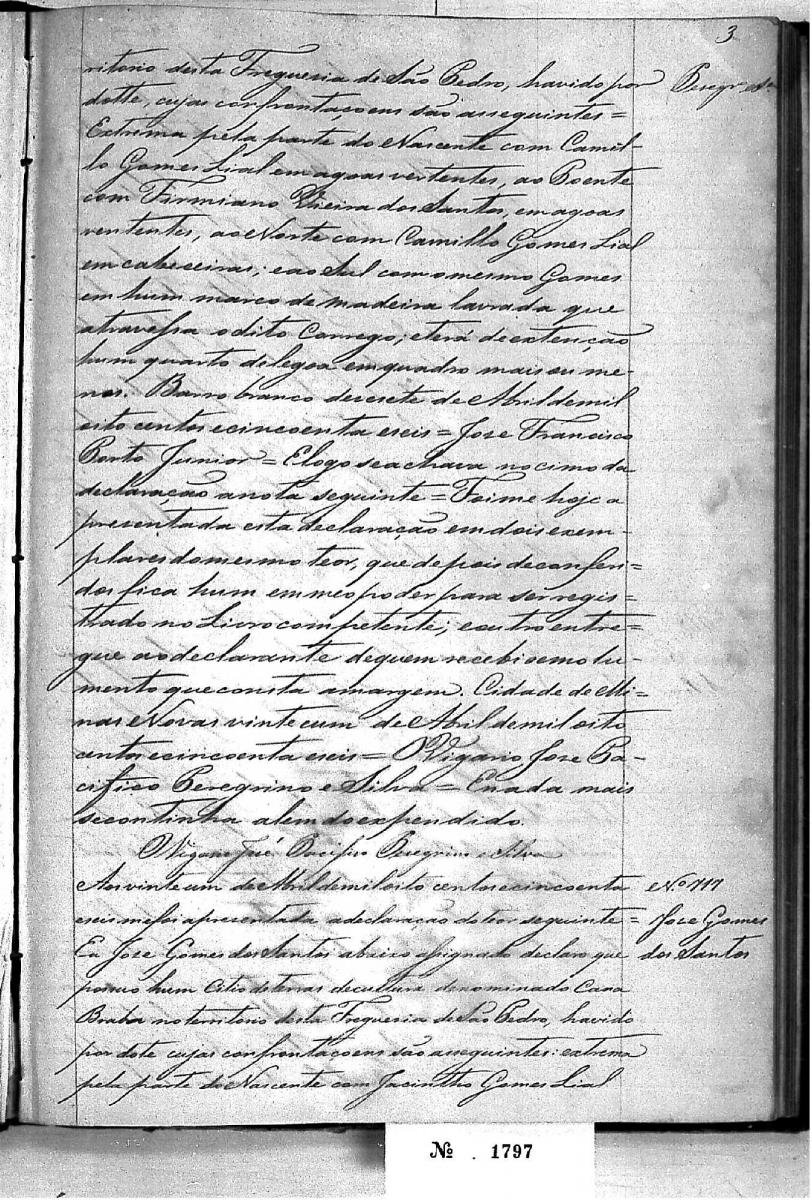 3
ritorio desta Freguesia de São Pedro, havido por
dotte, cujas confrontaçoens são asseguintes =
Extrema pela parte do Nascente com Camil-
lo Gomes Lial em agoas vertentes, ao Poente
com Firmiano Vieira dos Santos, em agoas
vertentes, ao Norte com Camillo Gomes Lial
em cabeceiras; e ao Sul com o mesmo Gomes
em hum marco de madeira lavrada que
atravessa o dito Corrego; e terá de extenção
hum quarto de legoa em quadro mais ou me-
nos. Barro branco desesete de Abril de mil
oito centos e cincoenta e seis = Jose Francisco
Porto Junior = E logo se achava no cimo da
declaração a nota seguinte = Foi me hoje a
presentada esta declaração em dois exem-
plares do mesmo teor, que depois de conferi=
dos fica hum em meo poder para ser regis=
trado no Livro competente; e outro entre=
gue ao declarante de quem recebi o emolu-
mento que consta a margem. Cidade de Mi=
nas Novas vinte e um de Abril de mil oito
centos e cincoenta e seis = O Vigario Jose Pa-
cifico Peregrino e Silva = E nada mais
se continha alem do expendido.
O Vigario José Pacifico Peregrino e Silva
Aos vinte um de Abril de mil oito centos e cincoenta
e seis me foi apresentada a declaração do teor seguinte =
Eu Jose Gomes dos Santos abaixo assignado declaro que
possuo hum Citio de terras de cultura denominado Cana
Braba no territorio desta Freguesia de São Pedro, havido
por dote cujas confrontaçoens são asseguintes: extrema
pela parte do Nascente com Jacintho Gomes Lial
No 717
Jose Gomes
dos Santos
No. 1797